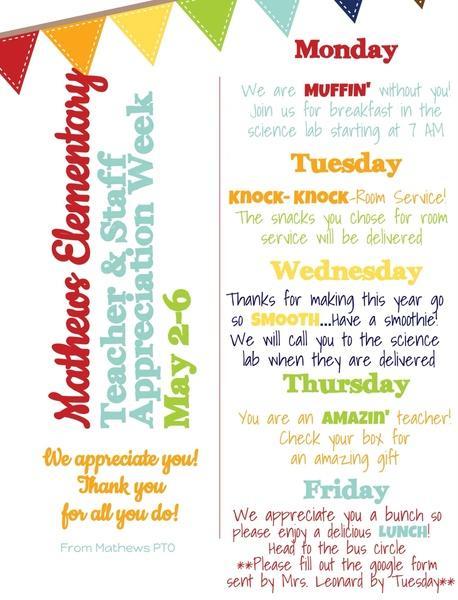 Mathews Elementary
Teacher & Staff
Appreciation Week
May 2-6
We appreciate you!
Thank you
for all you do!
From Mathews PTO
Monday
We are MUFFIN' without you!
Join us for breakfast in the
science lab starting at 7 AM
Tuesday
KNOCK-KNOCK-Room Service!
The snacks you chose for room
service will be delivered
Wednesday
Thanks for making this year go
so SMOOTH...Have a smoothie!
We will call you to the science
lab when they are delivered
Thursday
You are an AMAZIN' teacher!
Check your box for
an amazing gift
Friday
We appreciate you a bunch so
please enjoy a delicious LUNCH!
Head to the bus circle
**Please fill out the google form
sent by Mrs. Leonard by Tuesday**